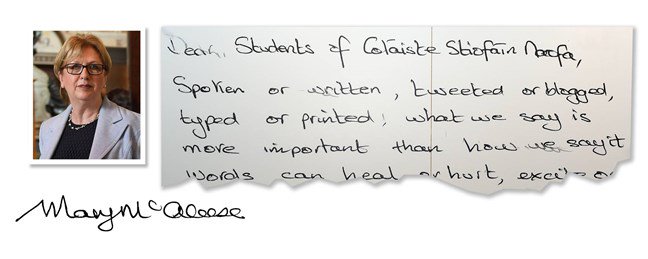 Dear, Students of Coláiste Stiofáin Naofa,
Spoken or written, tweeted or blogged,
typed or printed; what we say is
more important than how we say it
Words can heal or hurt, excite or
Mary McAleese